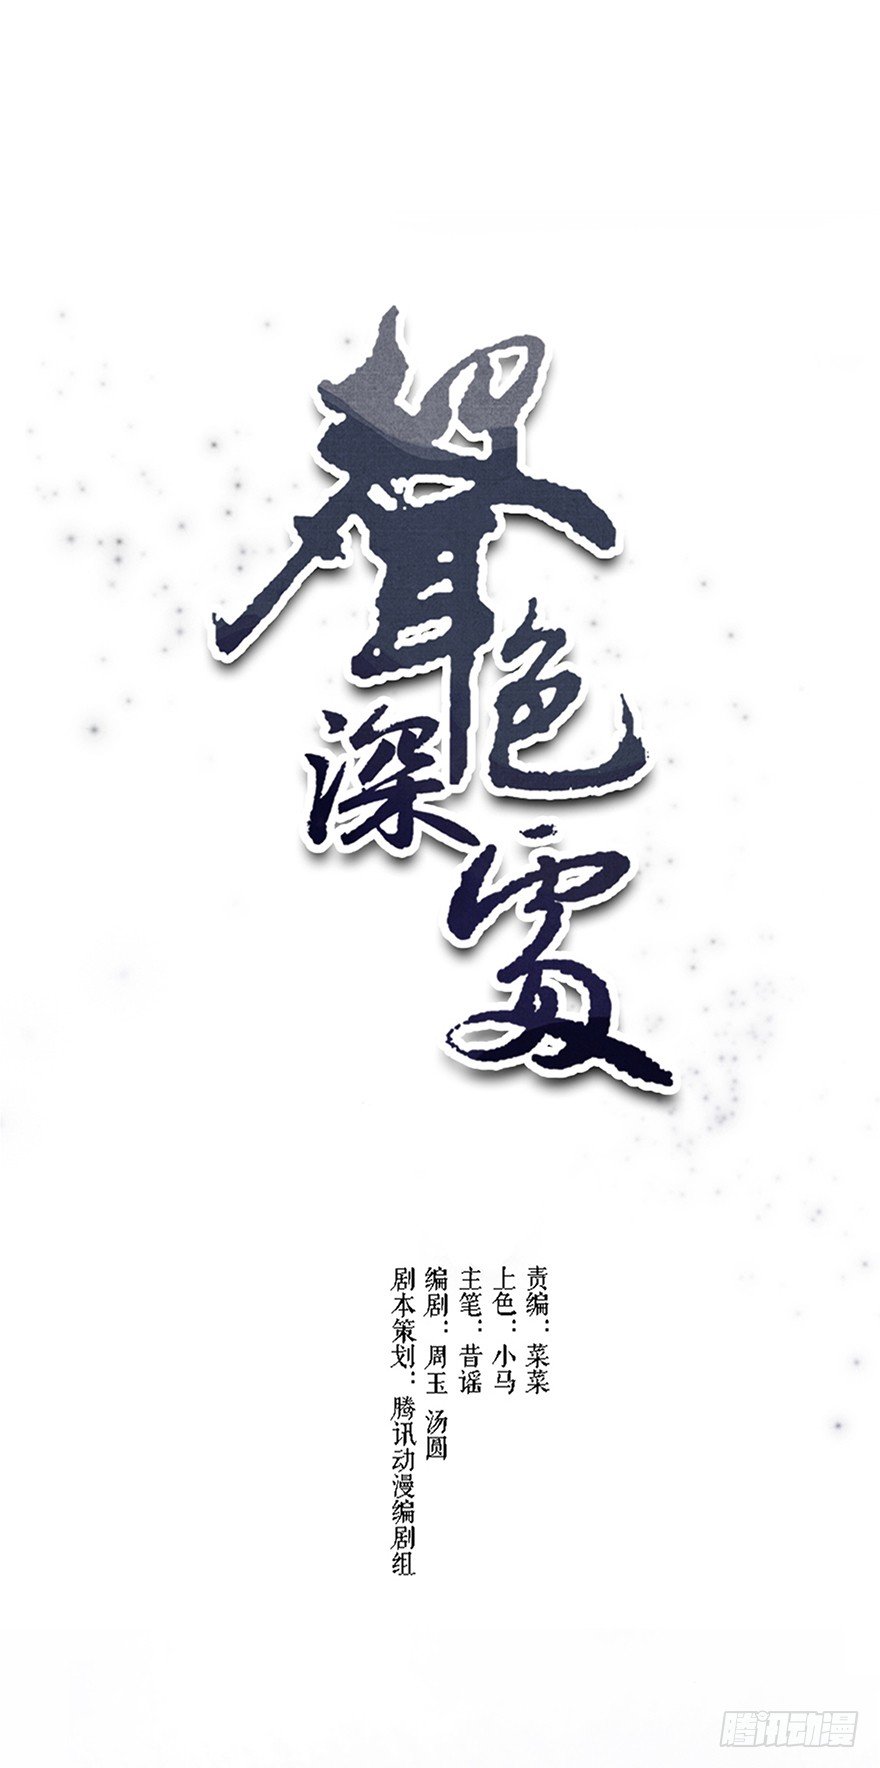 聲色深處
责编：菜菜
上色：小马
主笔：昔谣
编剧：周玉 汤圆
剧本策划：腾讯动漫编剧组
腾讯动漫